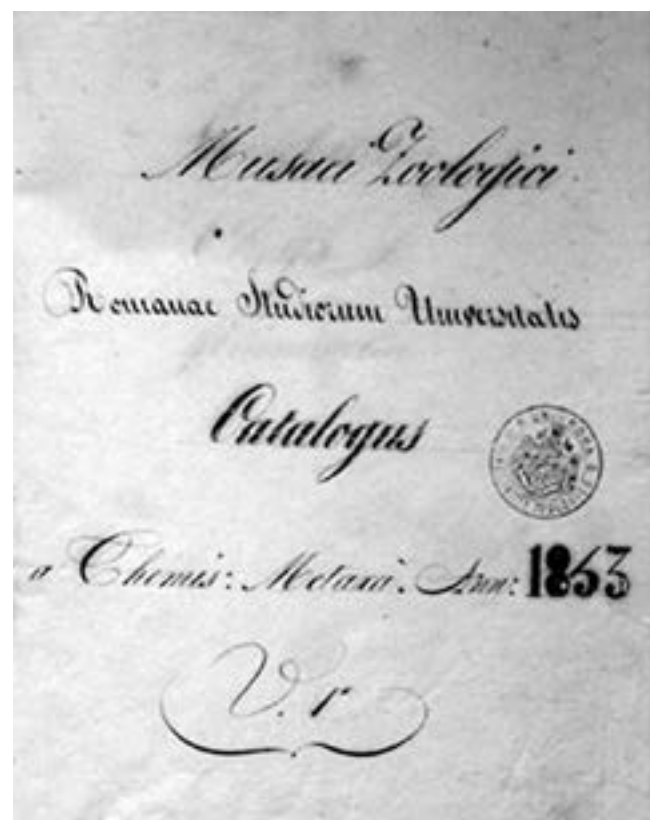 Musaei Zoologici
Romanae Studiorum Universitatis
Catalogus
a Themis: Metaxà. Ann: 1853
V. 1º